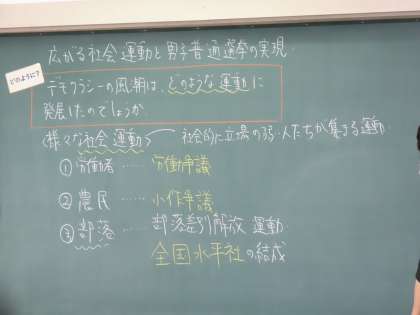 広がる社会運動と男子普通選挙の実現
どのように?
デモクラシーの風潮は、どのような運動に
発展したのでしょうか
〈様々な社会運動〉 社会的に立場の弱い人たちが集まる運動
①労働者……労働争議
②農民……小作争議
③部落……部落差別解放運動
全国水平社の結成